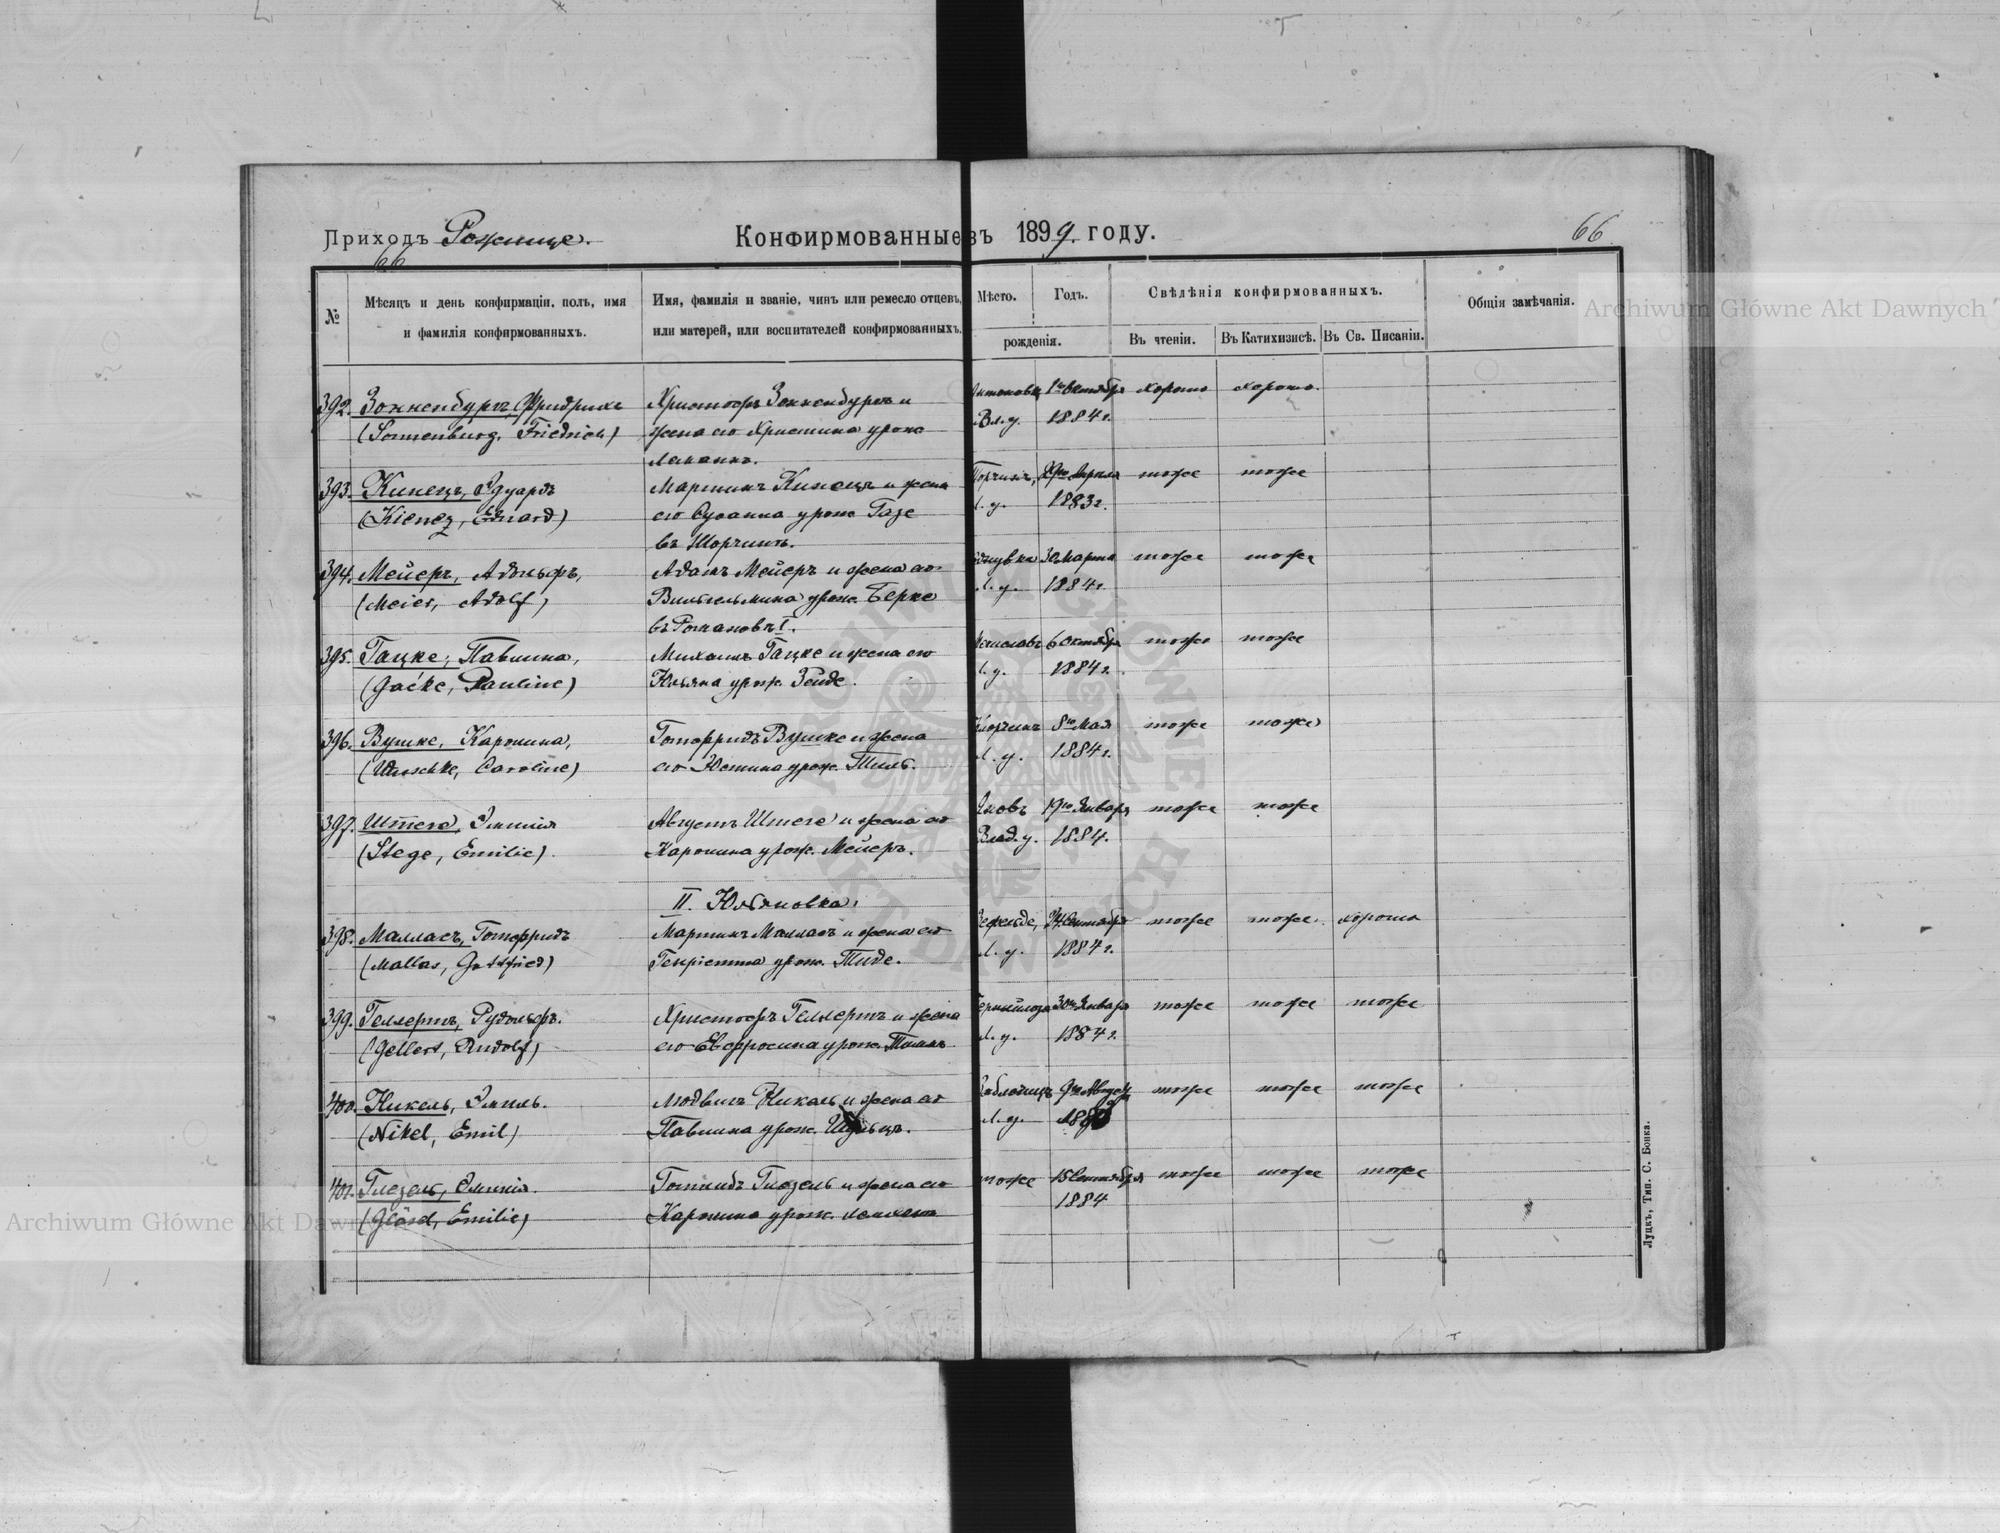 Приходъ Рожище.
Конфирмованные въ 1899. году.
66
66
№
Мѣсяцъ и день конфирмаціи, полъ, имя
и фамилія конфирмованныхъ.
Имя, фамилія и званіе, чинъ или ремесло отцевъ,
или матерей, или воспитателей конфирмованныхъ.
Мѣсто.
Годъ.
рожденія.
Свѣдѣнія конфирмованныхъ.
Въ чтеніи.
Въ Катихизисѣ.
Въ Св. Писаніи.
Общія замѣчанія.
392. Зонненбургъ, Фридрихъ
(Sonnenburg, Friedrich)
Христофъ Зонненбургъ и
жена его Христина урож.
1884 г.
хорошо хорошо.
393. Кинецъ, Эдуардъ
(Kienez, Eduard)
Мартинъ Кинецъ и жена
его Сусанна урож. Газе
въ Шорчинъ.
1883 г.
тоже тоже
394. Мейеръ, Адольфъ,
(Meier, Adolf)
Адамъ Мейеръ и жена его
Вильгельмина урож. Берке
въ Романовкѣ I.
30 Марта
1884 г.
тоже тоже
395. Гацке, Павлина,
(Gacke, Pauline)
Михаилъ Гацке и жена его
Юльяна урож. Зейде.
6 Октября
1884 г.
тоже тоже
396. Вушке, Каролина,
(Wuschke, Caroline)
Готфридъ Вушке и жена
его Юстина урож. Тиль.
8го Мая
1884 г.
тоже тоже
397. Штеге, Эмилія
(Stege, Emilie).
Августъ Штеге и жена его
Каролина урож. Мейеръ.
Влад. у.
19го Января
1884.
тоже тоже
II. Юльяновка.
398. Малласъ, Готфридъ
(Mallas, Gottfried)
Мартинъ Малласъ и жена его
Генріетта урож. Тиде.
Л. у.
1884 г.
тоже тоже. хорошо
399. Геллертъ, Рудольфъ.
(Gellert, Rudolf)
Христофъ Геллертъ и жена
его Евфросина урож.
Л. у.
30го Января
1884 г.
тоже тоже тоже
400. Никель, Эмиль.
(Nikel, Emil)
Людвигъ Никель и жена его
Павлина урож. Шульцъ.
Л. у.
тоже тоже тоже
401. Глезель, Эмилія.
(Gläsel, Emilie)
Готлибъ Глезель и жена его
Каролина урож.
тоже
15 Сентября
1884
тоже тоже тоже
Луцкъ, Тип. С. Бонка.
Archiwum Główne Akt Dawnych
Archiwum Główne Akt Dawnych